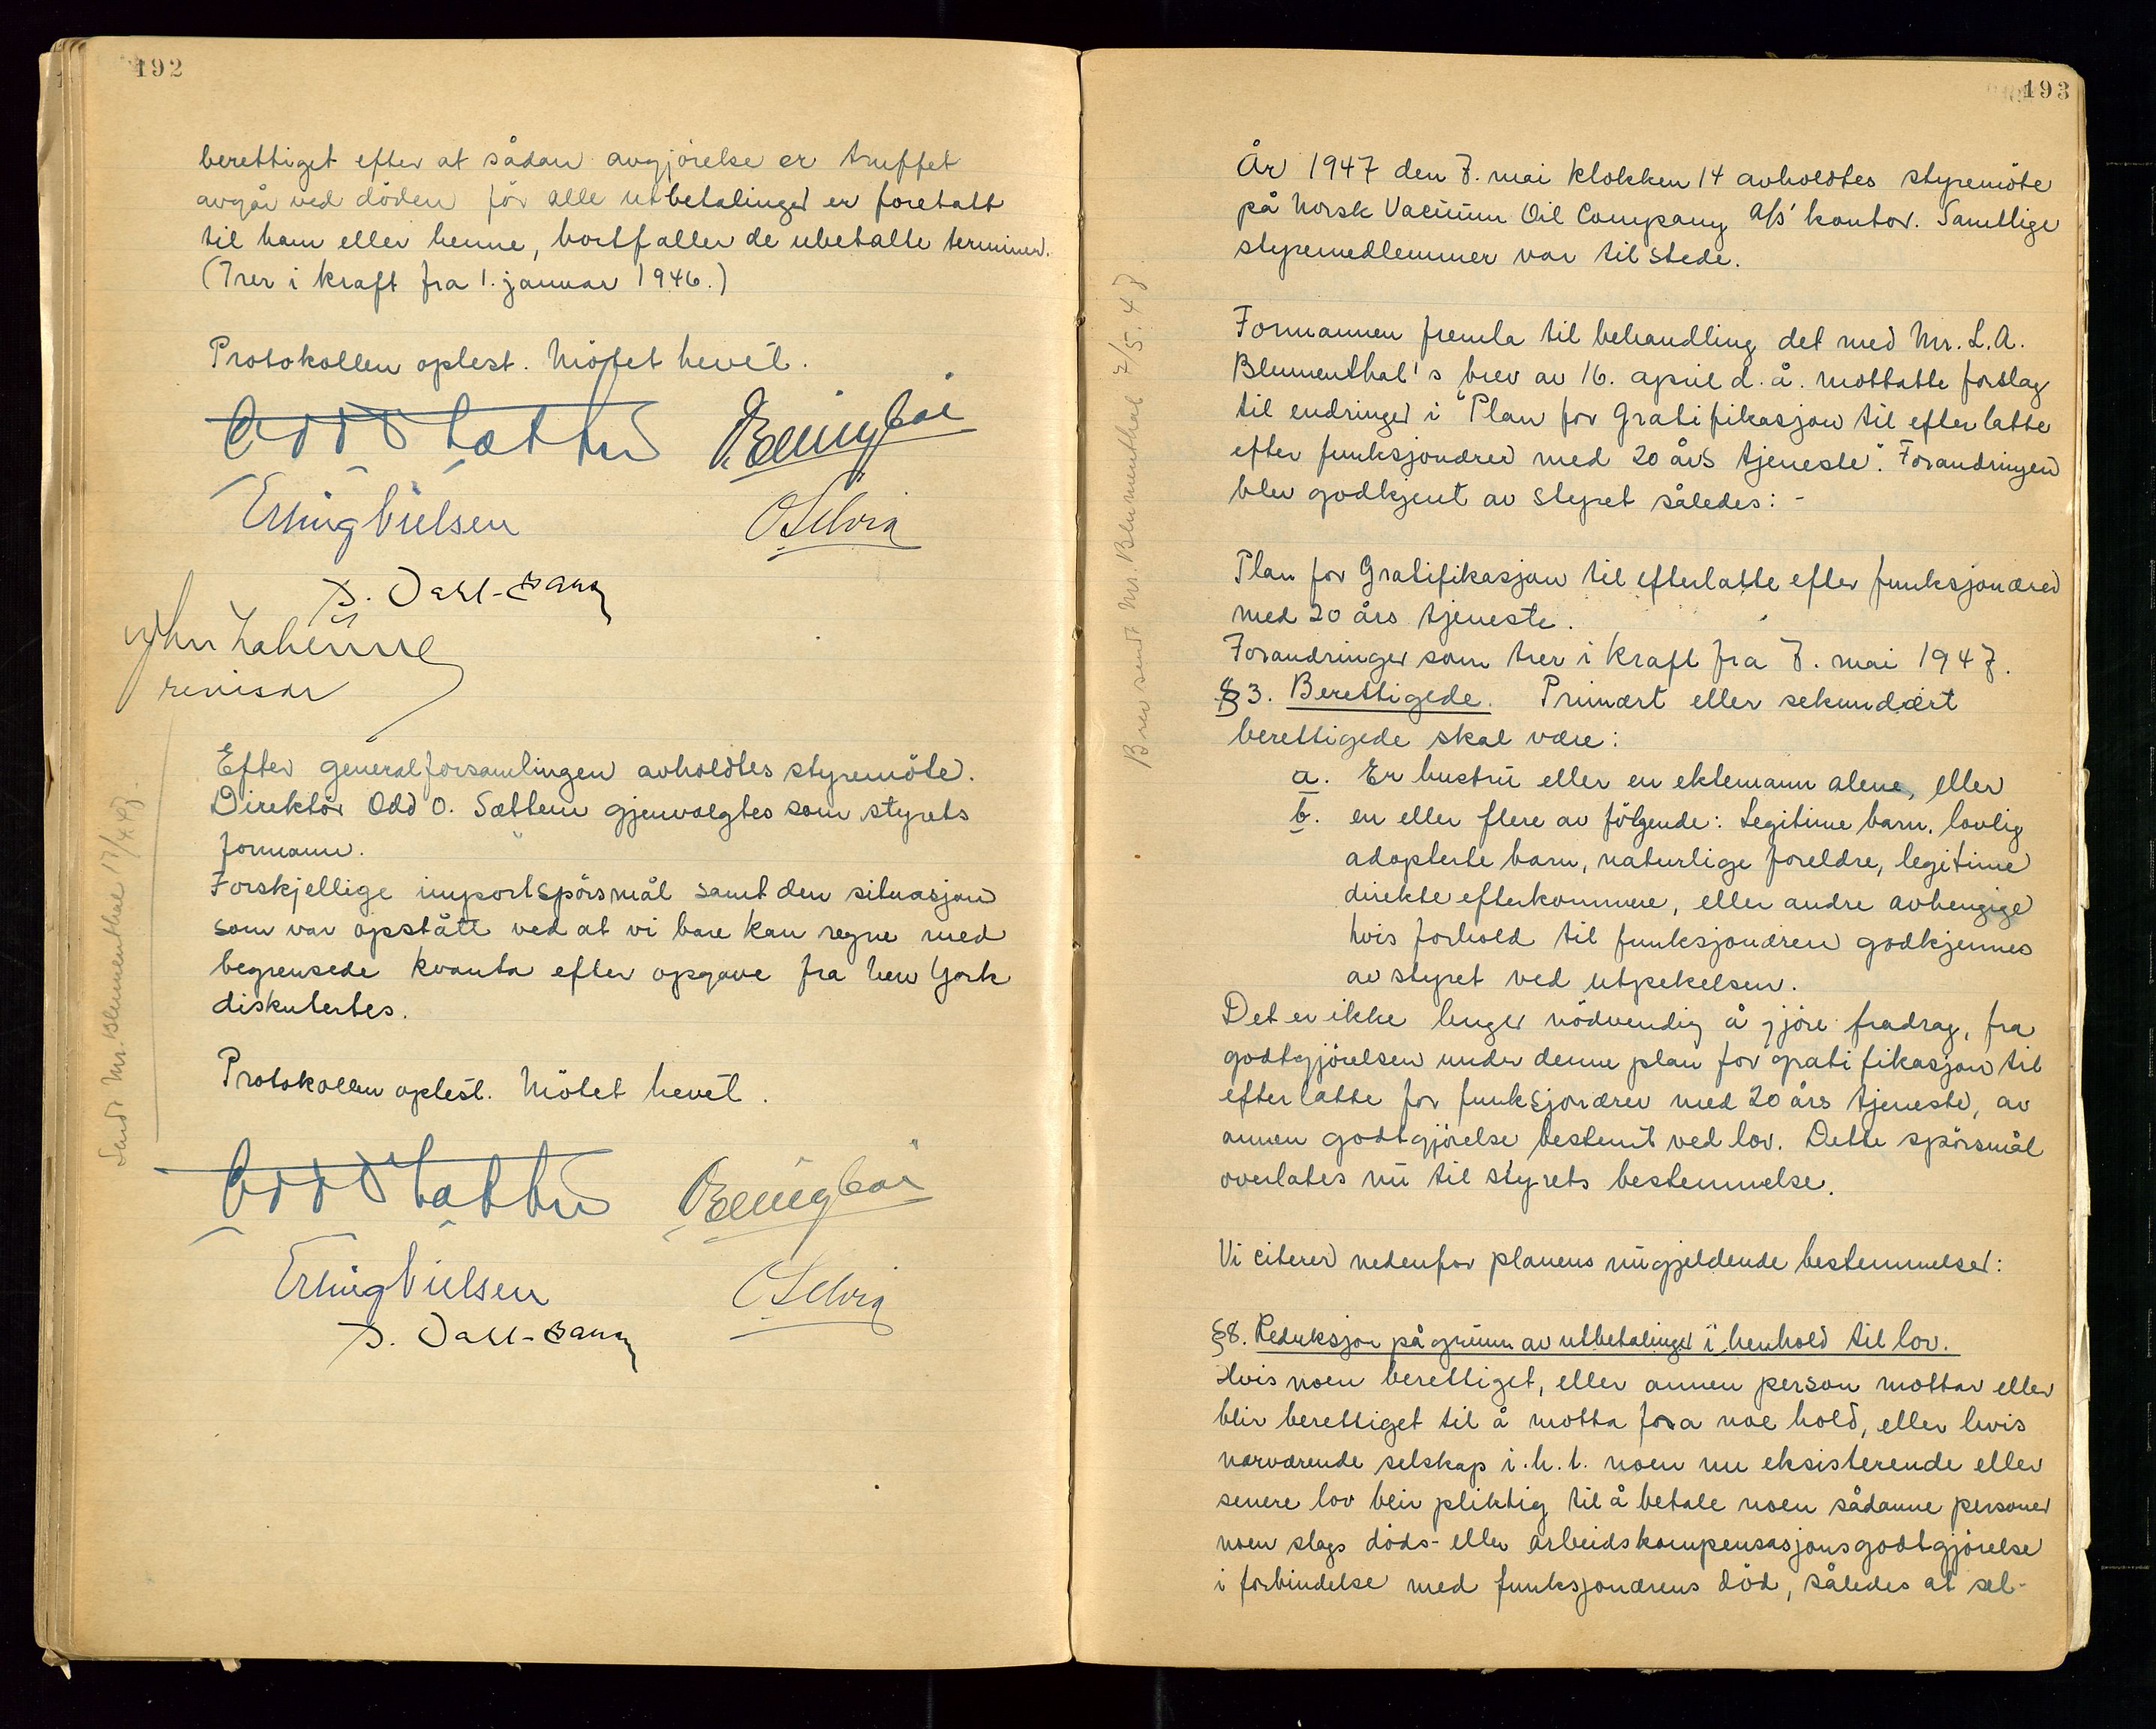 192
berettiget efter at sådan avgjörelse er truffet
avgår ved döden för alle utbetalinger er foretatt
til ham eller henne, bortfaller de ubetalte terminer.
(Trer i kraft fra 1. januar 1946.)
Protokollen oplest. Mötet hevet.
Odd Sættem
Erling Nielsen
revisor
Efter generalforsamlingen avholdtes styremöte.
Direktör Odd O. Sættem gjenvalgtes som styrets
formann.
Forskjellige importspörsmål samt den situasjon
som var opstått ved at vi bare kan regne med
begrensede kvanta efter opgave fra New York
diskutertes.
Sendt Mr. Blumenthal 17/4 47.
Protokollen oplest. Mötet hevet.
Odd Sættem
Erling Nielsen
193
År 1947 den 7. mai klokken 14 avholdtes styremöte
på Norsk Vacuum Oil Company A/S' kontor. Samtlige
styremedlemmer var tilstede.
Brev sendt Mr. Blumenthal 7/5. 47.
Formannen fremla til behandling det med Mr. L.A.
Blumenthal's brev av 16. april d.å. mottatte forslag
til endringer i "Plan for Gratifikasjon til efterlatte
efter funksjonærer med 20 års tjeneste". Forandringen
blev godkjent av styret således: -
Plan for Gratifikasjon til efterlatte efter funksjonærer
med 20 års tjeneste.
Forandringer som trer i kraft fra 7. mai 1947.
§ 3. Berettigede. Primært eller sekundært
berettigede skal være:
a. En hustru eller en ektemann alene, eller
b. en eller flere av fölgende: Legitime barn, lovlig
adopterte barn, naturlige foreldre, legitime
direkte efterkommere, eller andre avhengige
hvis forhold til funksjonæren godkjennes
av styret ved utpekelsen.
Det er ikke lenger nödvendig å gjöre fradrag, fra
godtgjörelsen under denne plan for gratifikasjon til
efterlatte for funksjonærer med 20 års tjeneste, av
annen godtgjörelse bestemt ved lov. Dette spörsmål
overlates nu til styrets bestemmelse.
Vi citerer nedenfor planens nugjeldende bestemmelser:
§8. Reduksjon på grunn av utbetalinger i henhold til lov.
Hvis noen berettiget, eller annen person mottar eller
blir berettiget til å motta fra noe hold, eller hvis
nærværende selskap i.h.t. noen nu eksisterende eller
senere lov blir pliktig til å betale noen sådanne personer
noen slags döds- eller arbeidskompensasjonsgodtgjörelse
i forbindelse med funksjonærens död, således at sel-